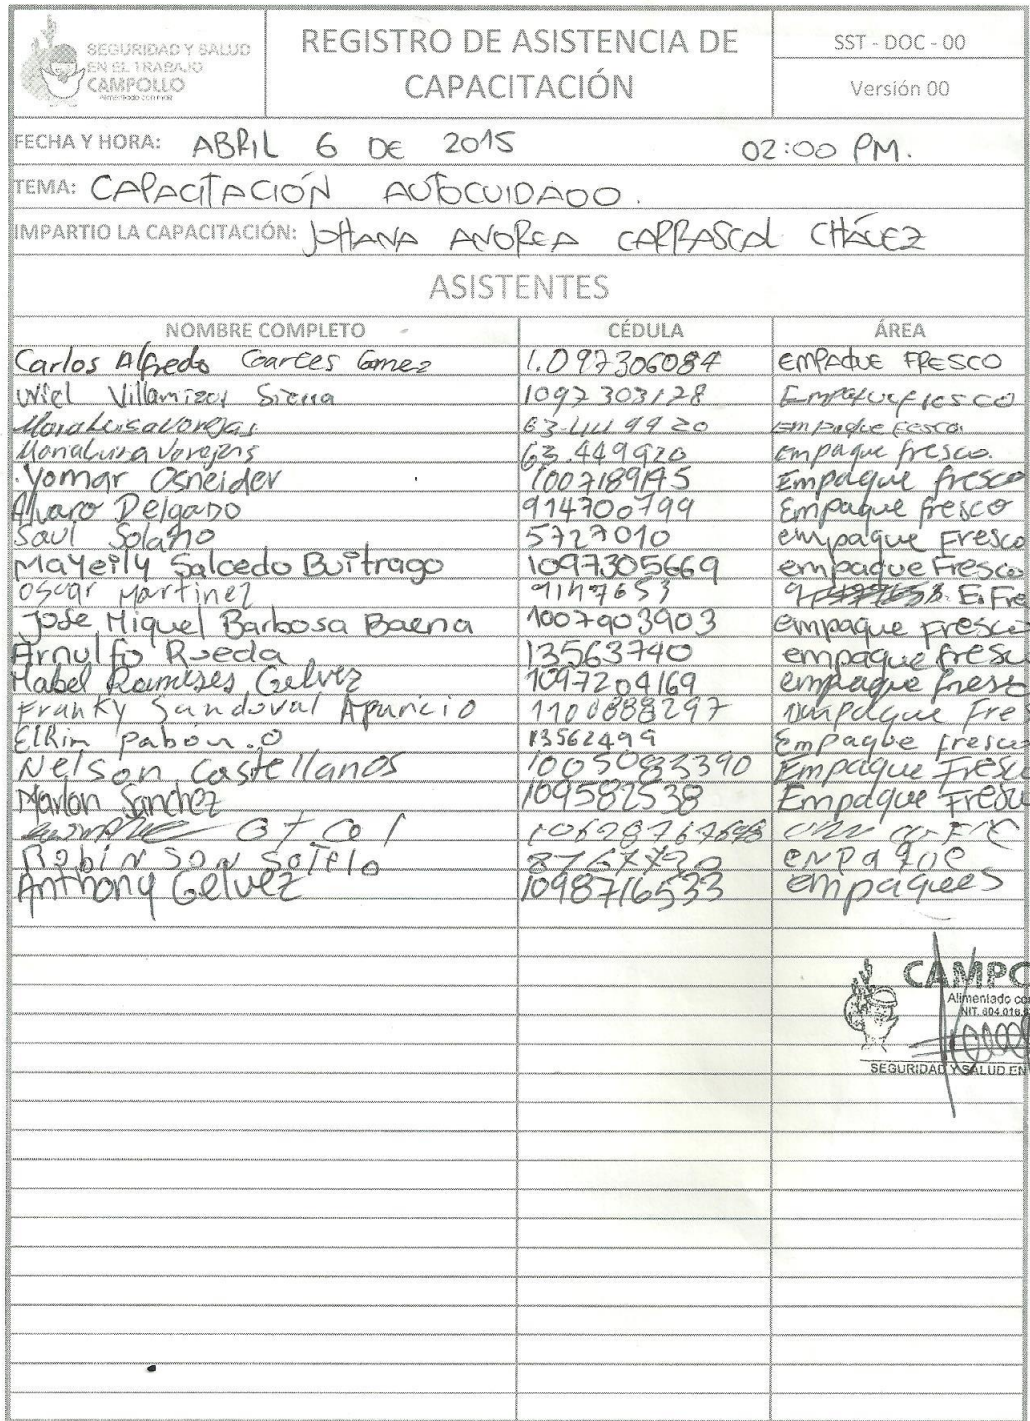 SEGURIDAD Y SALUD
EN EL TRABAJO
CAMPOLLO
REGISTRO DE ASISTENCIA DE
CAPACITACIÓN
SST - DOC - 00
Versión 00
FECHA Y HORA: ABRIL 6 DE 2015 02:00 PM.
TEMA: CAPACITACIÓN AUTOCUIDADO.
IMPARTIO LA CAPACITACIÓN: JOHANA ANDREA CARRASCAL CHÁVEZ
ASISTENTES
NOMBRE COMPLETO CÉDULA ÁREA
Carlos Alfredo Gomez 1.097306084 EMPAQUE FRESCO
Villamizar Sierra 1097303128 Empaque fresco
63.449920 Empaque
63.449920 empaque fresco.
Yomar Osneider Empaque fresco
Alvaro Delgado 914700799 Empaque fresco
Saul Solano 5727010 empaque Fresco
Mayeily Salcedo Buitrago 1097305669 empaque Fresco
Oscar Martinez 91147653 E. Fre
Jose Miguel Barbosa Baena 1007903903 empaque Fresco
Arnulfo Rueda 13563740 empaque fresc
Mabel Gelvez 1097204169 empaque fresc
Franky Sandoval Aparicio 1100888297 Fres
Elkin Pabon.O 13562499 Empaque fresco
Nelson Castellanos 1005083390 Empaque Fresc
Marlon Sanchez 109582538 Empaque Fresc
Robinson Sotelo
Anthony Gelvez 1098716533 empaquees
CAMPO
Alimentado co
NIT. 804.016.
SEGURIDAD Y SALUD EN